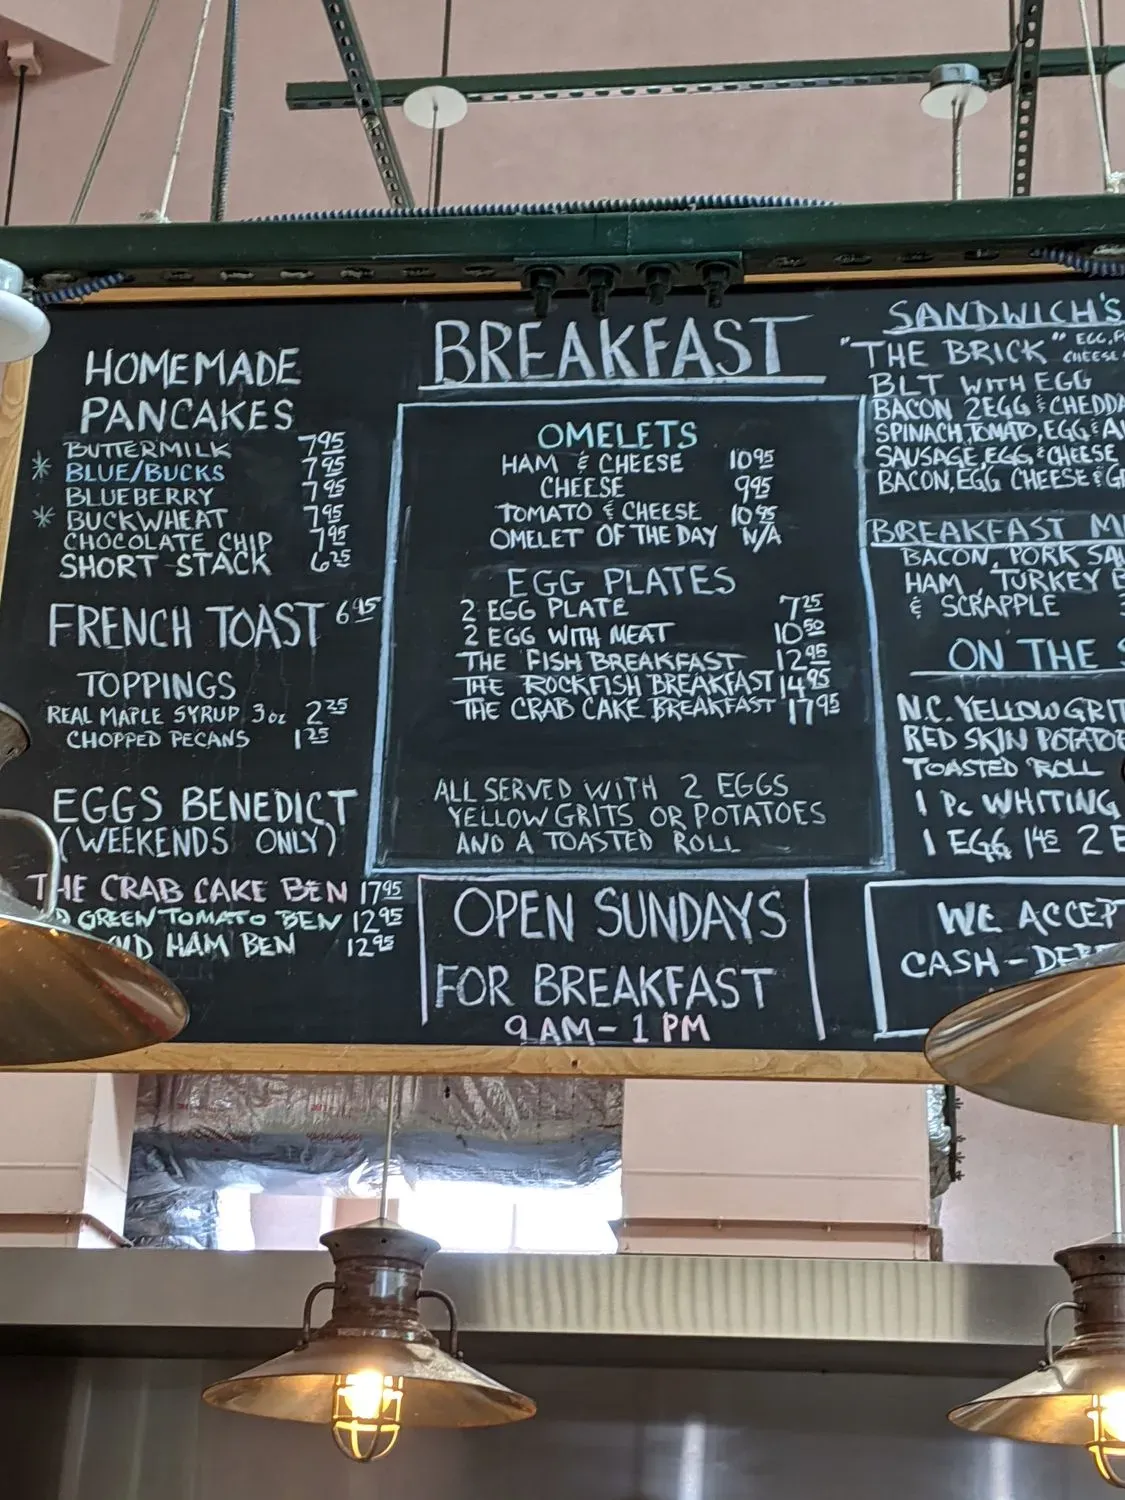 HOMEMADE
PANCAKES
BUTTERMILK 7 95
* BLUE/BUCKS 7 95
BLUEBERRY 7 95
* BUCKWHEAT 7 95
CHOCOLATE CHIP 7 95
SHORT STACK 6 25
FRENCH TOAST 6 95
TOPPINGS
REAL MAPLE SYRUP 3oz 2 25
CHOPPED PECANS 1 25
EGGS BENEDICT
(WEEKENDS ONLY)
THE CRAB CAKE BEN 17 95
GREEN TOMATO BEN 12 95
HAM BEN 12 95
BREAKFAST
OMELETS
HAM & CHEESE 10 95
CHEESE 9 95
TOMATO & CHEESE 10 95
OMELET OF THE DAY N/A
EGG PLATES
2 EGG PLATE 7 25
2 EGG WITH MEAT 10 50
THE FISH BREAKFAST 12 95
THE ROCKFISH BREAKFAST 14 95
THE CRAB CAKE BREAKFAST 17 95
ALL SERVED WITH 2 EGGS
YELLOW GRITS OR POTATOES
AND A TOASTED ROLL
OPEN SUNDAYS
FOR BREAKFAST
9 AM - 1 PM
SANDWICH'S
"THE BRICK" EGG,
CHEESE
BLT WITH EGG
BACON 2 EGG & CHEDDA
SPINACH, TOMATO, EGG &
SAUSAGE, EGG, & CHEESE
BACON, EGG CHEESE &
BREAKFAST
BACON, PORK
HAM, TURKEY
& SCRAPPLE
ON THE
N.C. YELLOW GRIT
RED SKIN POTATO
TOASTED ROLL
1 Pc WHITING
1 EGG 1 45 2
WE ACCEPT
CASH -